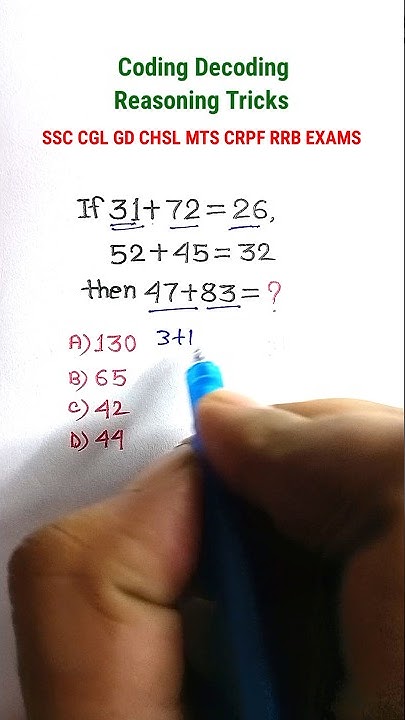 Coding Decoding
Reasoning Tricks
SSC CGL GD CHSL MTS CRPF RRB EXAMS
If 31+72=26,
52+45=32
then 47+83=?
A) 130
3+1
B) 65
C) 42
D) 44